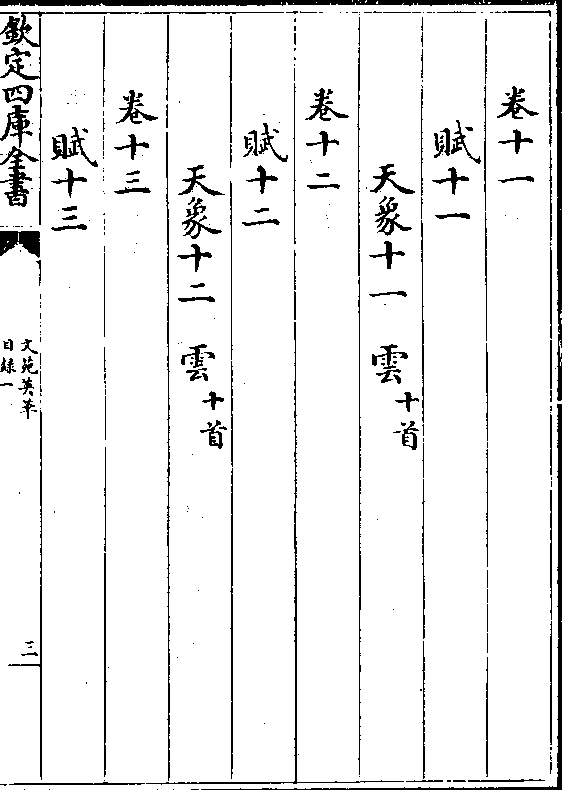 卷十一
賦十一
天象十一 雲十首
卷十二
賦十二
天象十二 雲十首
卷十三
賦十三
欽定四庫全書
文苑英華
目録一
三